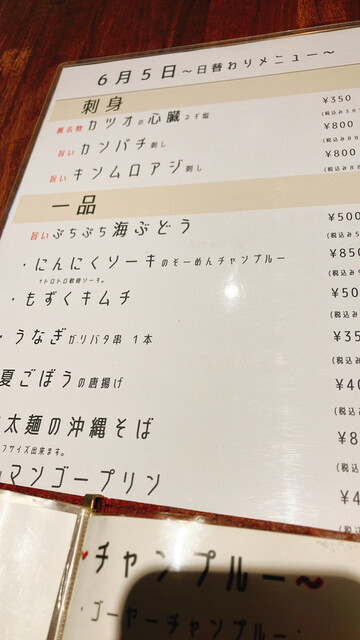 6月5日～日替わりメニュー～
刺身
カツオの心臓 ネギ塩 ¥350
旨い カンパチ刺し ¥800
旨い キンムロアジ刺し ¥800
一品
旨い ぷちぷち海ぶどう ¥500
(税込み5
・にんにくソーキのそーめんチャンプルー ¥850
↑トロトロ軟骨ソーキ。
(税込み
・もずくキムチ ¥50
(税込み
・うなぎガリバタ串 1本 ¥35
(税込み
夏ごぼうの唐揚げ ¥40
(税込み
太麺の沖縄そば ¥8
フサイズ出来ます。
(税込
マンゴープリン ¥4
(税込
チャンプルー～
・ゴーヤーチャンプルー・